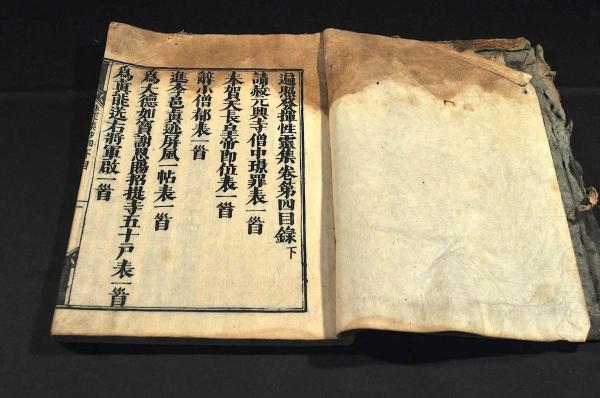 遍照發揮性靈集卷第四目錄下
請赦元興寺僧中璟罪表一首
奉賀天長皇帝即位表一首
辭小僧都表一首
進李邕真迹屏風一帖表一首
為大德如寶謝恩賜招提寺五十戶表一首
為真能送右將軍啟一首